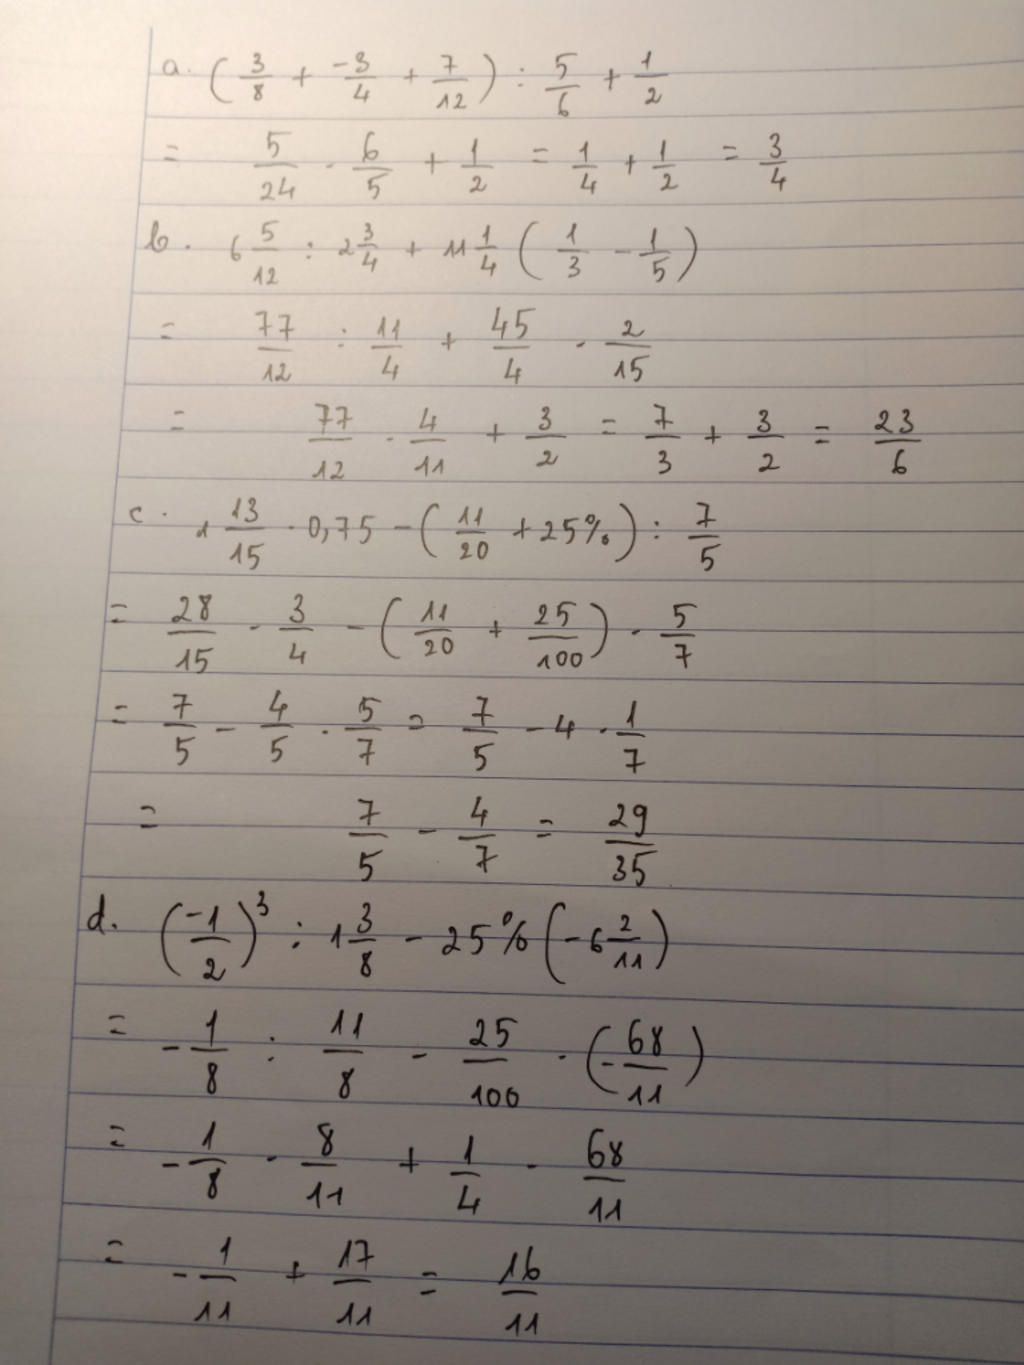 a. (3/8 + -3/4 + 7/12) : 5/6 + 1/2
= 5/24 · 6/5 + 1/2 = 1/4 + 1/2 = 3/4
b. 6 5/12 : 2 3/4 + 11 1/4 (1/3 - 1/5)
= 77/12 : 11/4 + 45/4 · 2/15
= 77/12 · 4/11 + 3/2 = 7/3 + 3/2 = 23/6
c. 1 13/15 · 0,75 - (11/20 + 25%) : 7/5
= 28/15 · 3/4 - (11/20 + 25/100) · 5/7
= 7/5 - 4/5 · 5/7 = 7/5 - 4 · 1/7
= 7/5 - 4/7 = 29/35
d. (-1/2)³ : 1 3/8 - 25% (-6 2/11)
= -1/8 : 11/8 - 25/100 · (-68/11)
= -1/8 · 8/11 + 1/4 · 68/11
= -1/11 + 17/11 = 16/11